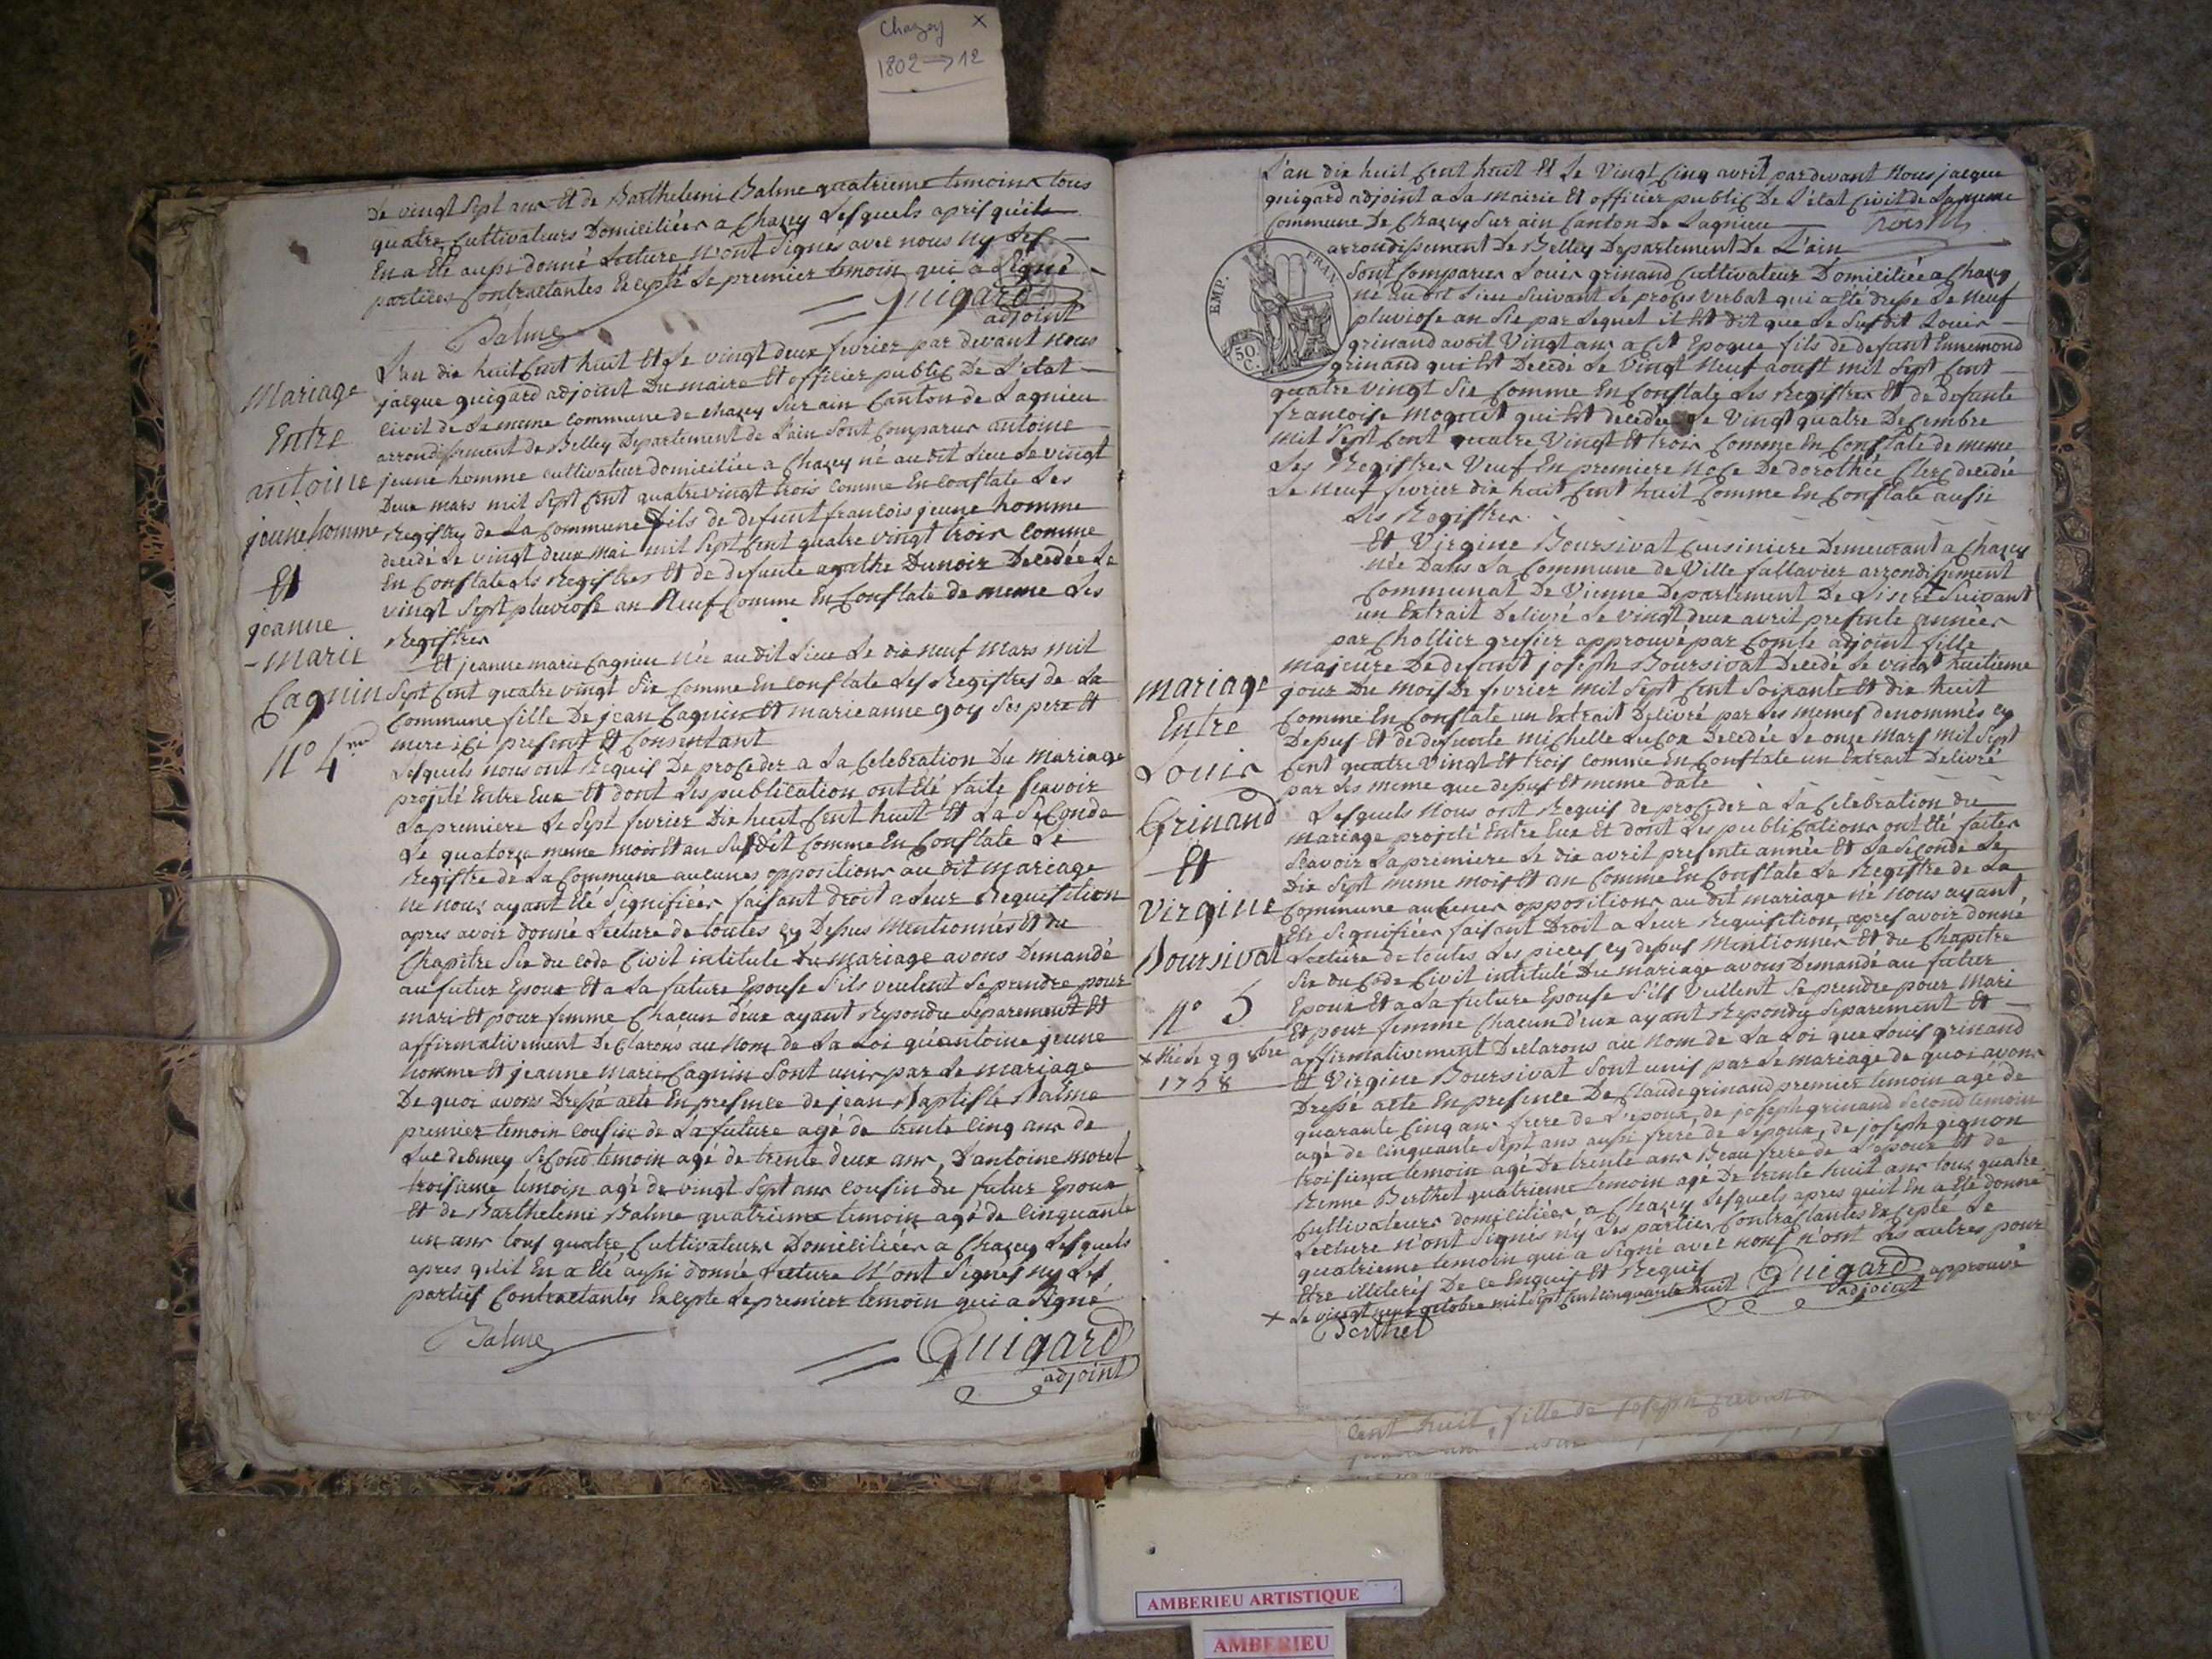 Chazey X
1802 → 12
De vingt Sept ans Et de Barthelemi Balme quatrieme temoins tous
quatre Cultivateurs Domiciliées a Chazey Lesquels apris qu'ils
En a Eté aussi donné Lecture N'ont Signés avec nous ny Les
parties Contractantes Excepté Le premier temoin qui a Signé
Balme
Guigard
adjoint
Mariage
Entre
antoine
jeune homme
Et
jeanne
-marie
Cagnin
N° 4
L'an dix huit Cent huit Et Le vingt deux fevrier par devant Nous
jacque guigard adjoint Du maire Et officier public De L'état
Civil de La meme Commune de Chazey Sur ain Canton de Lagnieu
arrondissement de Belley Departement de L'ain Sont Comparus antoine
jeune homme cultivateur domiciliée a Chazey né audit Lieu Le vingt
Deux mars mil Sept Cent quatrevingt trois comme En Constate Les
Registres de La Commune fils de defunt francois jeune homme
decedé Le vingt deux mai mil Sept Cent quatre vingt trois Comme
En Constate Les Registres Et de defunte agathe Dunoir Decedée Le
vingt Sept pluviose an Neuf Comme En Constate de meme Les
Registres
Et jeanne marie Cagnieu Née audit Lieu Le dix neuf Mars mil
Sept Cent quatre vingt Six Comme En Constate Les Registres de La
Commune fille De jean Cagnin Et marieanne goy Ses pere Et
mere ici present Et Consentant
Lesquels nous ont Requis De proceder a La Celebration Du Mariage
projeté Entre Eux Et dont Les publication ont Eté faite Scavoir
La premiere Le Sept fevrier Dix huit Cent huit Et La Seconde
Le quatorze meme mois Et an Susdit Comme En Constate Le
Registre de La Commune aucunes oppositions audit mariage
ne nous ayant Eté Signifiées faisant droit a Leur Requisition
apres avoir donné Lecture de toutes cy Dessus Mentionnés Et du
Chapitre Six du Code Civil intitulé Du Mariage avons Demandé
au futur Epoux Et a La future Epouse S'ils veulent Se prendre pour
mari Et pour femme Chacun d'eux ayant Repondu Separement Et
affirmativement Declarons au Nom de La Loi qu'antoine jeune
homme Et jeanne Marie Cagnin Sont unis par Le mariage
De quoi avons Dressé acte En presence de jean Baptiste Balme
premier temoin cousin de La future agé de trente Cinq ans de
Luc debeney Second temoin agé de trente deux ans, D'antoine moret
troisieme temoin agé de vingt Sept ans cousin du futur Epoux
Et de Barthelemi Balme quatrieme temoin agé de Cinquante
un ans tous quatre Cultivateurs Domiciliées a Chazey Lesquels
apres qu'il En a Eté aussi donné Lecture N'ont Signés ny Les
parties Contractantes Excepte Le premier temoin qui a Signé
Balme
Guigard
adjoint
L'an dix huit Cent huit Et Le Vingt Cinq avril par devant Nous jacque
guigard adjoint a La Mairie Et officier public De L'état Civil de La meme
Commune De Chazey Sur ain Canton De Lagnieu
arrondissement De Belley Departement De L'ain
EMP. FRAN.
50 C.
Sont Comparus Louis grinand Cultivateur Domiciliée a Chazey
né audit Lieu Suivant Le proces Verbal qui a Eté dresse Le Neuf
pluviose an Six par Lequel il Est dit que Le Susdit Louis
grinand avoit Vingt ans a Cet Epoque fils de defunt Ennemond
grinand qui Est Decedé Le Vingt Neuf aoust mil Sept Cent
quatre Vingt Six Comme En Constate Les Registres Et de defunte
francoise moguet qui Est decedée Le Vingt quatre Decembre
Mil Sept Cent quatre Vingt Et trois Comme En Constate de meme
Les Registres Veuf En premiere Noce De dorothée Clerc decedée
Le Neuf fevrier dix huit Cent huit Comme En Constate aussi
Les Registres.
Et Virgine Boursivat Cuisiniere Demeurant a Chazey
née Dans La Commune de Ville fallavier arrondissement
Communal De Vienne Departement De L'isere Suivant
un Extrait Delivré Le Vingt deux avril presente années
par Chollier grefier approuvé par Comte adjoint fille
majeure De defunt joseph Boursivat Decedé Le vingt huitieme
jour Du Mois De fevrier mil Sept Cent Soixante Et dix huit
Comme En Constate un Extrait Delivré par Les memes denommés cy
Depus Et de defunte Michelle Lucon Decedée Le onze Mars Mil Sept
Cent quatre Vingt Et trois Comme En Constate un Extrait Delivré
par Les meme que depus Et meme date
Mariage
Entre
Louis
Grinand
Et
Virgine
Boursivat
N° 5
1758
Lesquels Nous ont Requis de proceder a La Celebration du
Mariage projeté Entre Eux Et dont Les publications ont Eté faites
Scavoir La premiere Le dix avril presente année Et La Seconde Le
Dix Sept meme mois Et an Comme En Constate Le Registre de La
Commune aucunes oppositions audit mariage Ne Nous ayant
Eté Signifiées faisant Droit a Leur Requisition, apres avoir donné
Lecture de toutes Les pieces cy depus Mentionnés Et du Chapitre
Six du Code Civil intitulé Du mariage avons Demandé au futur
Epoux Et a La future Epouse S'ils Vuillent Se prendre pour Mari
Et pour femme Chacun d'eux ayant Repondy Separement Et
affirmativement Declarons au Nom de La Loi que Louis grinand
Et Virgine Boursivat Sont unis par Le mariage de quoi avons
Dressé acte En presence De Claude grinand premier temoin agé de
quarante Cinq ans frere de L'epoux, de joseph grinand Second temoin
agé de Cinquante Sept ans aussi frere de L'epoux, de joseph gignon
troisieme temoin agé De trente ans Beau frere de L'epoux Et de
Berthet quatrieme temoin agé De trente huit ans tous quatre
Cultivateurs domiciliées a Chazey Lesquels apres qu'il En a Eté donné
Lecture N'ont Signés ny Les parties Contractantes Excepté Le
quatrieme temoin qui a Signé avec nous n'ont Les autres pour
Etre illiterés De Ce Enquis Et Requis
Guigard
adjoint
approuvé
X Le vingt neuf octobre mil Sept Cent cinquante huit
Berthet
Cent huit, fille de joseph
AMBERIEU ARTISTIQUE
AMBERIEU